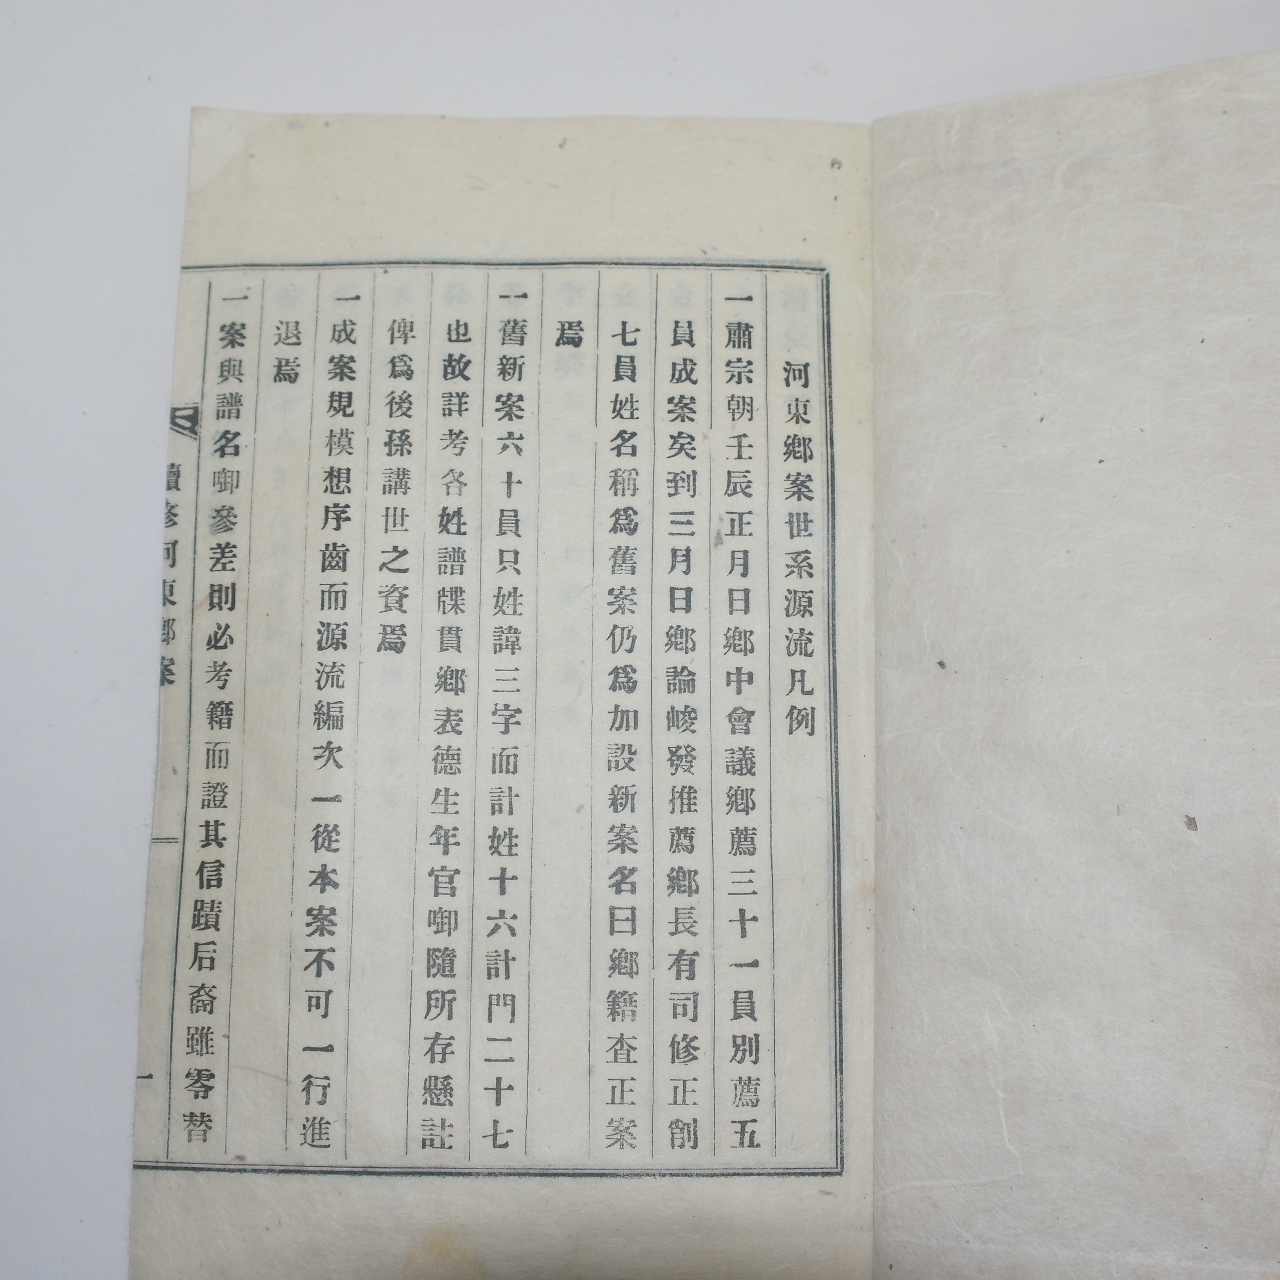 河東鄕案世系源流凡例
一肅宗朝壬辰正月日鄕中會議鄕薦三十一員別薦五
員成案矣到三月日鄕論峻發推薦鄕長有司修正削
七員姓名稱爲舊案仍爲加設新案名曰鄕籍査正案
焉
一舊新案六十員只姓諱三字而計姓十六計門二十七
也故詳考各姓譜牒貫鄕表德生年官啣隨所存懸註
俾爲後孫講世之資焉
一成案規模想序齒而源流編次一從本案不可一行進
退焉
一案與譜名啣參差則必考籍而證其信蹟后裔雖零替
續修河東鄕案
一